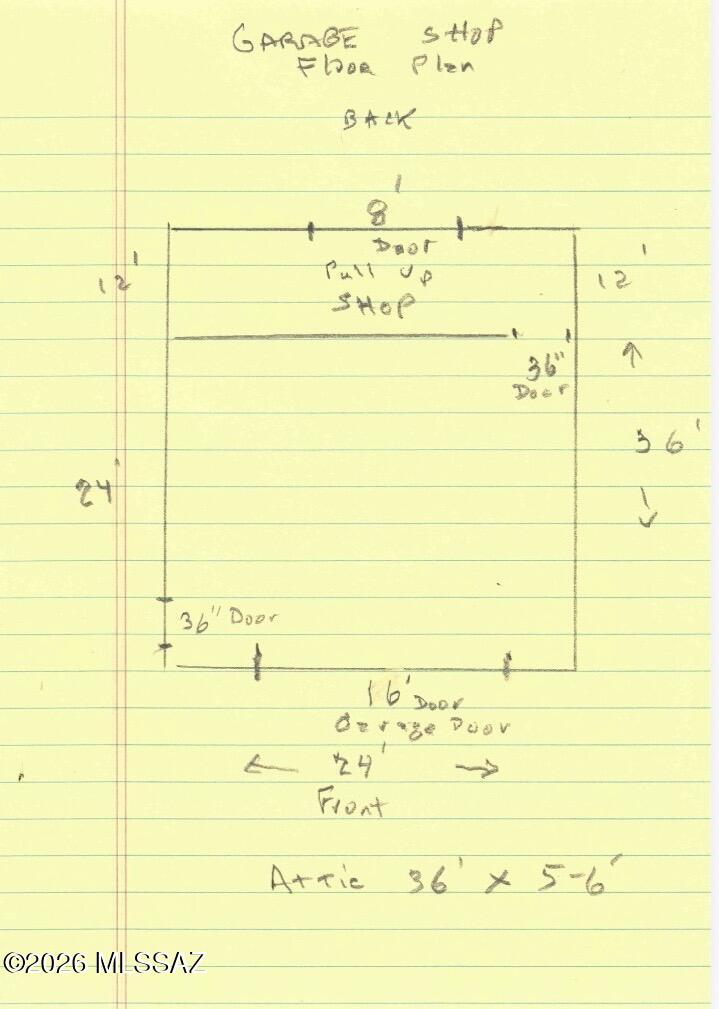 GARAGE SHOP
Floor Plan
BACK
8'
Door
Pull Up
SHOP
12'
12'
36"
Door
36'
24'
36" Door
16' Door
Garage Door
24'
Front
Attic 36' x 5-6'
©2026 MLSSAZ